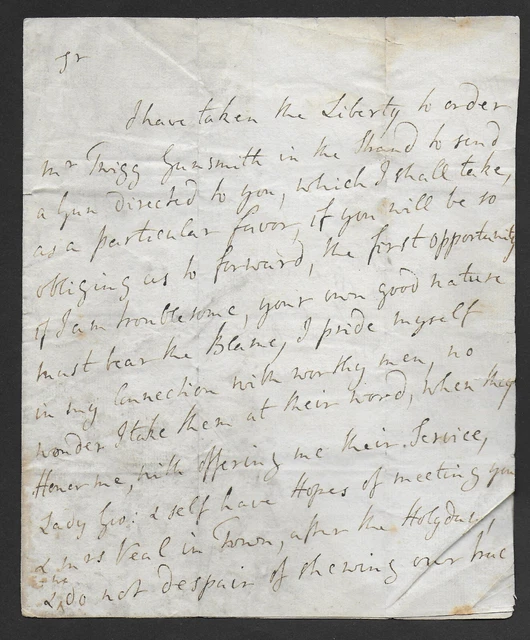 Sr
I have taken the Liberty to order
Mr Twigg Gunsmith in the Strand to send
a Gun directed to you, which I shall take,
as a particular favor, if you will be so
obliging as to forward, the first opportunity
if I am troublesome, your own good nature
must bear the Blame, I pride myself
in my Connection with worthy men, no
wonder I take them at their word, when they
Honor me, with offering me their Service,
Lady Geo: & self have Hopes of meeting you
& Mrs Veal in Town, after the Holydays,
& do not despair of shewing our true